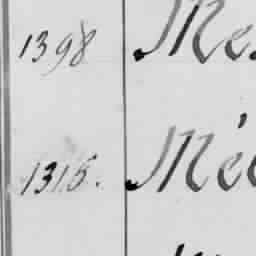 1398 Me
1315. Mé